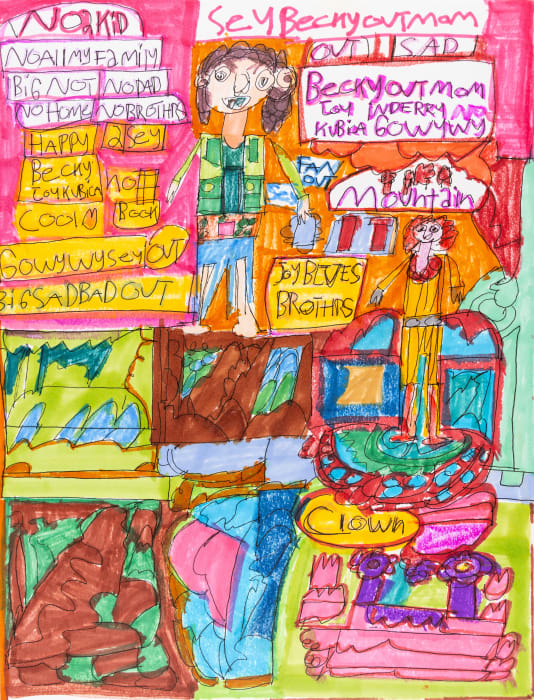 NO KID
SEY BECKY OUT MOM
NO All MY FAMiLY
OUT SAD
BiG NOT NO DAD
BECKY OUT MOM
NO HOME NO BROTHRS
JOY INDERRY NO
KUBiCA GOWYWY
HAPPY 2 SEY
BECKY
JOY KUBiCA
NOT
FAN
OUT
COOL
BECK
Mountain
GOWYWY SEY OUT
JOY BLUES
BROTHRS
BiG SAD BAD OUT
Clown